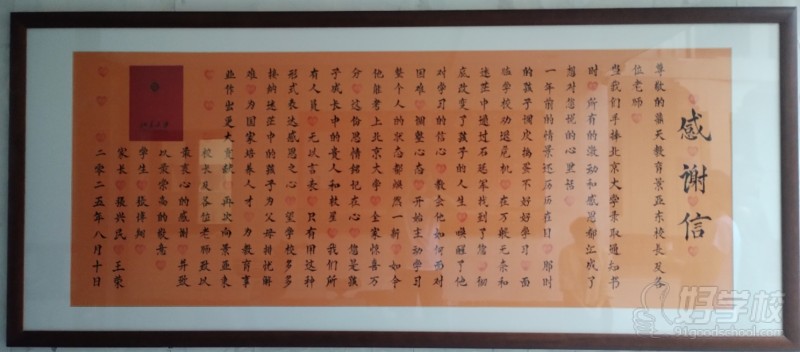 感谢信
尊敬的集天教育景亚东校长及各
位老师
当我们手捧北京大学录取通知书
时 所有的激动和感恩都汇成了
想对您说的心里话
一年前的情景还历历在目 那时
的孩子调皮捣蛋不好好学习 面
临学校劝退危机 在万般无奈和
迷茫中通过石延军找到了您 彻
底改变了孩子的人生 唤醒了他
对学习的信心 教会他如何面对
困难 调整心态 开始主动学习
整个人的状态都焕然一新 如今
他能考上北京大学 全家惊喜万
分 这份恩情铭记在心 您是孩
子成长中的贵人和救星 我们所
有人员 无以言表 只有用这种
形式表达感恩之心 望学校多多
接纳迷茫中的孩子为父母排忧解
难 为国家培养人才 为教育事
业作出更大贡献 再次向景亚东
校长及各位老师致以
最衷心的感谢 并致
以最崇高的敬意
学生 张博翔
家长 张兴民 王荣
二零二五年八月十日
好学校
91goodschool.com